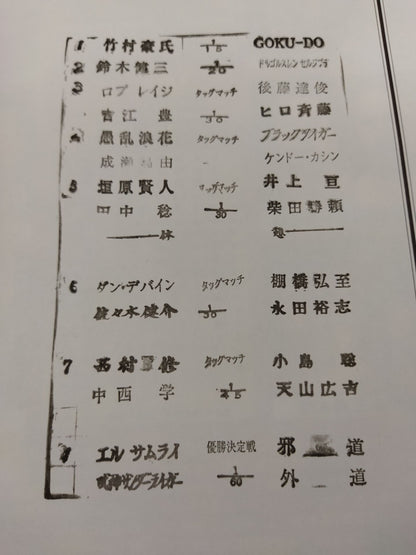 1 竹村豪氏 1/15 GOKU-DO
2 鈴木健三 1/20 ドルゴルスレン セルジブデ
3 ロブ レイジ タッグマッチ 後藤達俊
吉江 豊 1/30 ヒロ斉藤
4 愚乱浪花 タッグマッチ ブラックタイガー
成瀬昌由 ケンドー・カシン
5 垣原賢人 タッグマッチ 井上 亘
田中 稔 1/30 柴田勝頼
休 憩
6 ダン・デバイン タッグマッチ 棚橋弘至
佐々木健介 1/30 永田裕志
7 西村 修 タッグマッチ 小島 聡
中西 学 1/45 天山広吉
エル サムライ 優勝決定戦 邪 道
獣神サンダーライガー 1/60 外 道